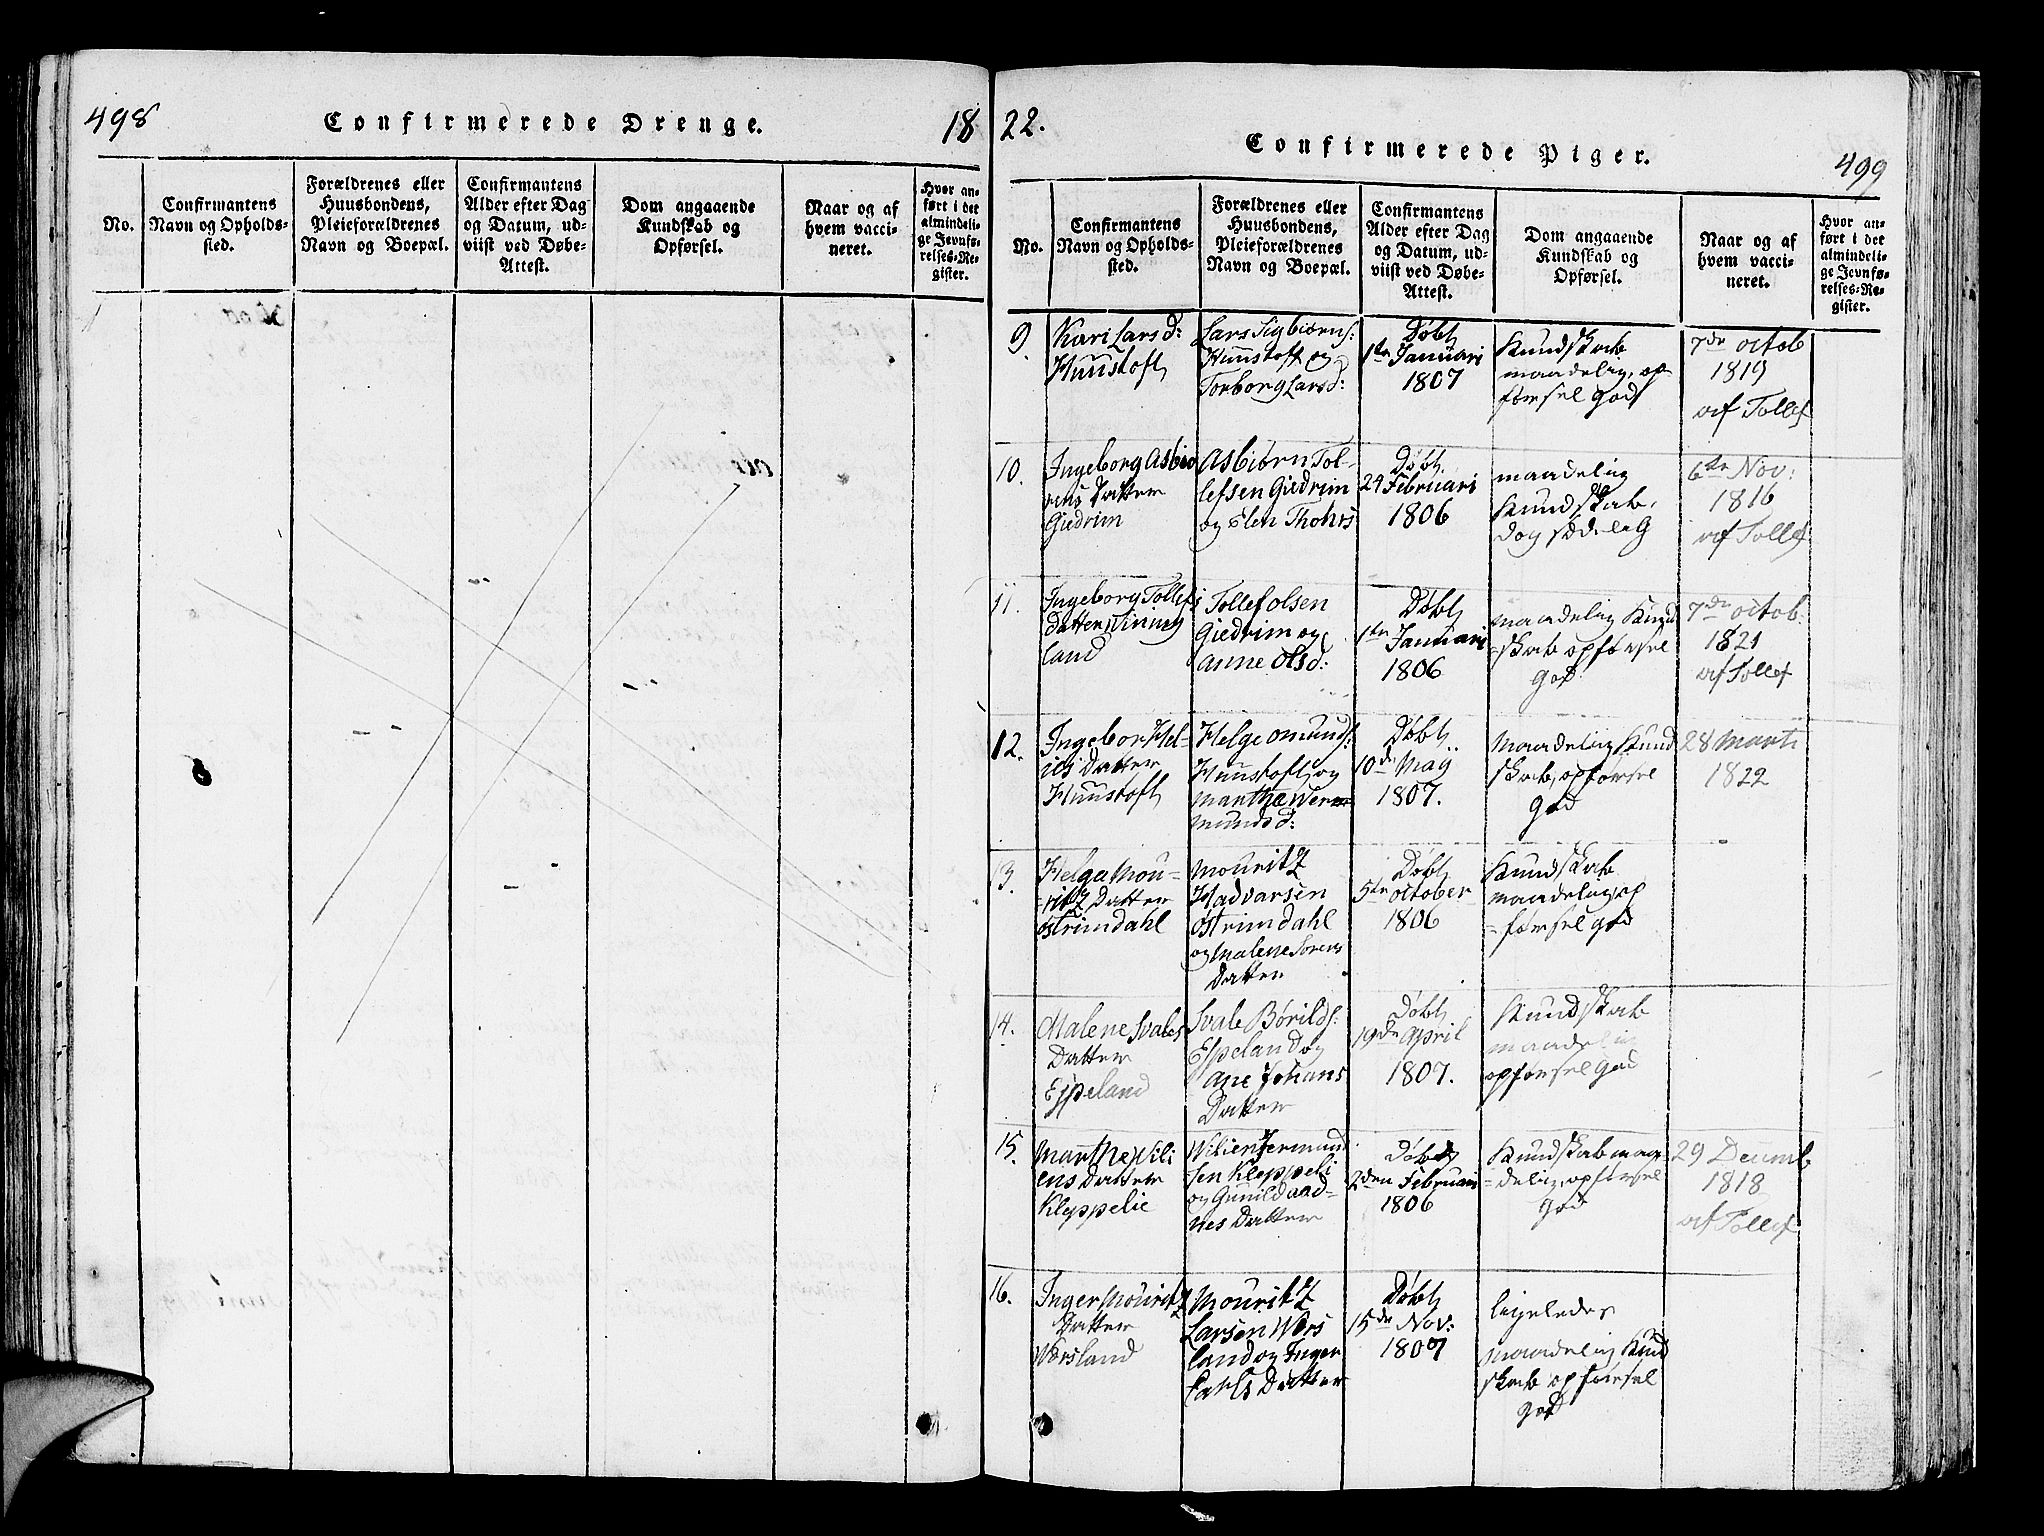 498
Confirmerede Drenge.
18
No.
Confirmantens
Navn og Opholds-
sted.
Forældrenes eller
Huusbondens,
Pleieforældrenes
Navn og Boepæl.
Confirmantens
Alder efter Dag
og Datum, ud-
viist ved Døbe-
Attest.
Dom angaaende
Kundskab og
Opførsel.
Naar og af
hvem vacci-
neret.
Hvor an-
ført i det
almindeli-
ge Jevnfø-
relses-Re-
gister.
22.
Confirmerede Piger.
499
No.
Confirmantens
Navn og Opholds-
sted.
Forældrenes eller
Huusbondens,
Pleieforældrenes
Navn og Boepæl.
Confirmantens
Alder efter Dag
og Datum, ud-
viist ved Døbe-
Attest.
Dom angaaende
Kundskab og
Opførsel.
Naar og af
hvem vacci-
neret.
Hvor an-
ført i det
almindeli-
ge Jevnfø-
relses-Re-
gister.
9.
Kari Larsd:
Huustoft
Lars Sigbiørns:
Huustoft og
Torborg Larsd:
Døbt
1te Januari
1807
Kundskab
maadelig, op-
førsel god
7de octob
1819
af Tollef
10.
Ingeborg Asbiø
rens Datter
Giedrim
Asbiørn Tol-
lefsen Giedrim
og Elen Thohrs
Døbt
24 Februari
1806
maadelig
Kundskab,
dog sædelig
6te Nov:
1816
af Tollef
11.
Ingeborg Tollefs
Datter Vining
land
Tollef olsen
Giedrim og
anne olsd:
Døbt
1te Januari
1806
maadelig Kund
-skab opførsel
god
7de octob:
1821
af Tollef
12.
Ingebor Hel-
ies Datter
Huustoft
Helge omunds:
Huustoft og
marthe Wer=
munds d:
Døbt
10de Maÿ
1807.
Maadelig Kund
skab, opførsel
god
28 Marti
1822
13.
Helga Mou-
=ritz Datter
østrimdahl
Mouritz
Hadvarsen
østrimdahl
og Malene Sørens
Datter
Døbt
5te october
1806
Kundskab
maadelig, op
=førsel god
14.
Malene Svales
Datter
Espeland
Svale Børilds:
Espeland og
Ane Johans
Datter
Døbt
19de April
1807.
Kundskab
maadelig
opførsel god
15.
Marthe Vili
ens Datter
Kleppelie
Vilien Jermund
sen Kleppeli
og Gunild aad-
nes Datter
Døbt
2den Februari
1806
Kundskab maa-
=delig, opførsel
god
29 Decemb
1818
af Tollef
16.
Inger Mouritz
Datter
Worsland
Mouritz
Larsen Wors
land og Inger
Carls Datter
Døbt
15de Nov:
1807
ligeledes
maadelig Kund
skab opførsel
god